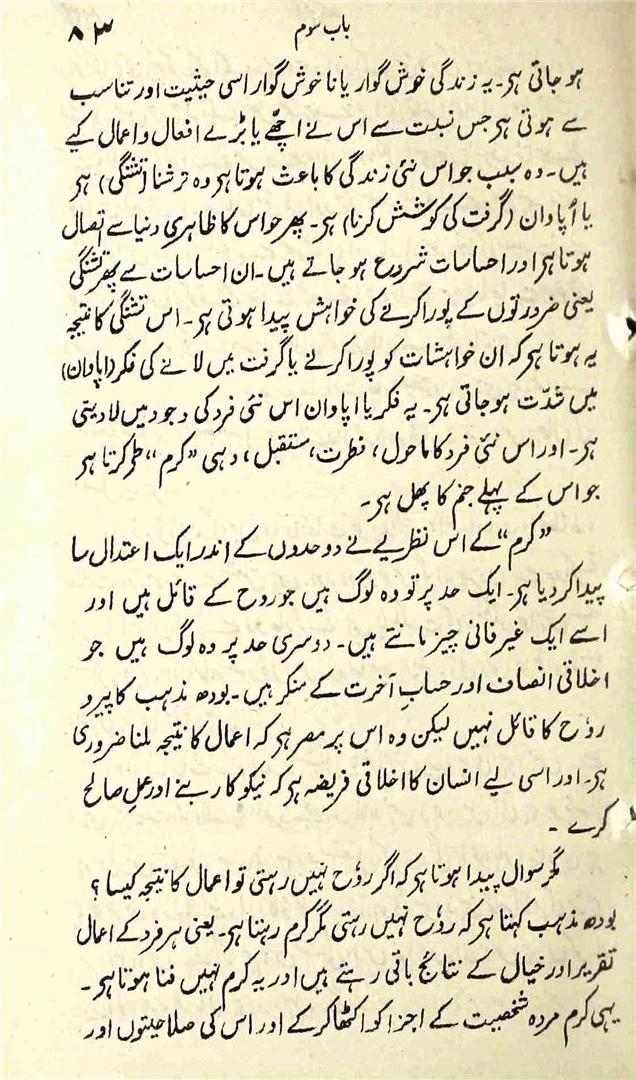 باب سوم ۸۳
ہو جاتی ہے۔ یہ زندگی خوش گوار یا نا خوش گوار اسی حیثیت اور تناسب
سے ہوتی ہے جس نسبت سے اس نے اچھّے یا بُرے افعال و اعمال کیے
ہیں۔ وہ سبب جو اس نئی زندگی کا باعث ہوتا ہے وہ ترشنا (تشنگی) ہے
یا اُپادان (گرفت کی کوشش کرنا) ہے۔ پھر حواس کا ظاہری دنیا سے اتصال
ہوتا ہے اور احساسات شروع ہو جاتے ہیں۔ ان احساسات سے پھر تشنگی
یعنی ضرورتوں کے پورا کرنے کی خواہش پیدا ہوتی ہے۔ اس تشنگی کا نتیجہ
یہ ہوتا ہے کہ ان خواہشات کو پورا کرنے یا گرفت میں لانے کی فکر (اپادان)
میں شدّت ہو جاتی ہے۔ یہ فکر یا اپادان اس نئی فرد کی وجود میں لا دیتی
ہے۔ اور اس نئی فرد کا ماحول، فطرت، مستقبل، وہی ”کرم“ طے کرتا ہے
جو اس کے پہلے جنم کا پھل ہے۔
”کرم“ کے اس نظریے نے دو حدوں کے اندر ایک اعتدال سا
پیدا کر دیا ہے۔ ایک حد پر تو وہ لوگ ہیں جو روح کے قائل ہیں اور
اسے ایک غیر فانی چیز مانتے ہیں۔ دوسری حد پر وہ لوگ ہیں جو
اخلاقی انصاف اور حسابِ آخرت کے منکر ہیں۔ بودھ مذہب کا پیرو
روٗح کا قائل نہیں لیکن وہ اس پر مصر ہے کہ اعمال کا نتیجہ ملنا ضروری
ہے۔ اور اسی لیے انسان کا اخلاقی فریضہ ہے کہ نیکوکار بنے اور عملِ صالح
کرے۔
مگر سوال پیدا ہوتا ہے کہ اگر روٗح نہیں رہتی تو اعمال کا نتیجہ کیسا؟
بودھ مذہب کہتا ہے کہ روٗح نہیں رہتی مگر کرم رہتا ہے۔ یعنی ہر فرد کے اعمال
تقریر اور خیال کے نتائج باقی رہتے ہیں اور یہ کرم نہیں فنا ہوتا ہے۔
یہی کرم مردہ شخصیت کے اجزا کو اکٹھا کر کے اور اس کی صلاحیتوں اور